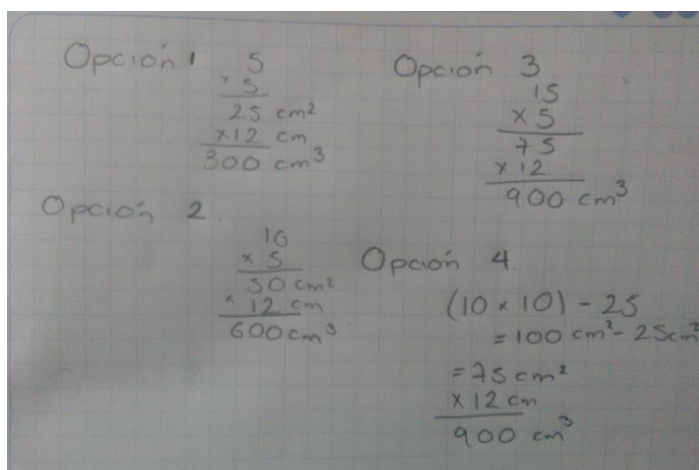 Opción 1
5
× 5
25 cm²
×12 cm
300 cm³
Opción 2.
10
× 5
50 cm²
× 12 cm
600 cm³
Opción 3
15
× 5
75
× 12
900 cm³
Opción 4.
(10 × 10) - 25
= 100 cm² - 25cm²
= 75 cm²
×12 cm
900 cm³